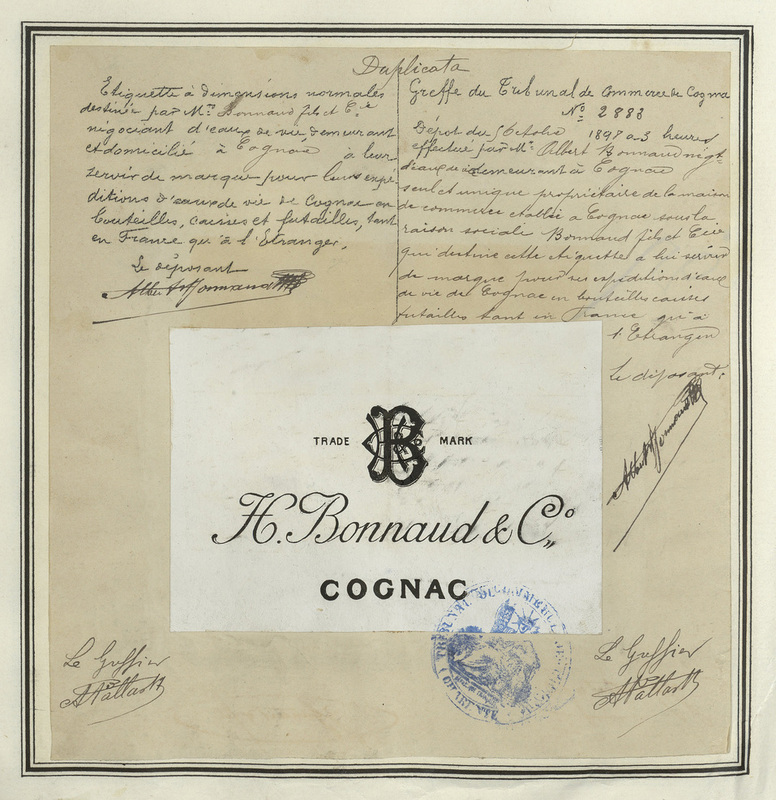 Duplicata
Etiquette à dimensions normales
destinée par Mrs Bonnaud fils et Cie
négociant d'eaux de vie, demeurant
et domicilié à Cognac à leur
servir de marque pour leurs expé-
ditions d'eaux de vie de Cognac en
bouteilles, caisses et futailles, tant
en France qu'à l'Etranger.
Le déposant
Albert Bonnaud
Greffe du Tribunal de Commerce de Cognac
No 2883
Dépôt du 5 Octobre 1897 à 3 heures
effectué par Mr Albert Bonnaud négt
d'eaux de vie demeurant à Cognac
seul et unique propriétaire de la maison
de commerce établie à Cognac sous la
raison sociale Bonnaud fils et Cie
qui destine cette étiquette à lui servir
de marque pour ses expéditions d'eaux
de vie de Cognac en bouteilles caisses
futailles tant en France qu'à
l'Etranger
Le déposant:
Albert Bonnaud
TRADE MARK
H. Bonnaud & Co
COGNAC
TRIBUNAL DE COMMERCE
CHARENTE
Le Greffier
Le Greffier